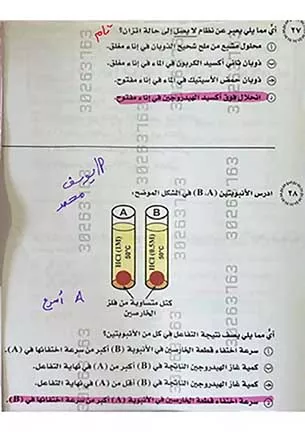 ٢٧ أي مما يلي يعبر عن نظام لا يصل إلى حالة اتزان؟
تام
محلول مشبع من ملح شحيح الذوبان في إناء مغلق.
ذوبان ثاني أكسيد الكربون في الماء في إناء مغلق.
ذوبان حمض الأسيتيك في الماء في إناء مفتوح.
انحلال فوق أكسيد الهيدروجين في إناء مفتوح.
٢٨ ادرس الأنبوبتين (B , A) في الشكل الموضح:
يوسف
محمد
A B
HCl (1M) 50°C HCl (0.5M) 50°C
A أسرع
كتل متساوية من فلز
الخارصين
أي مما يلي يصف نتيجة التفاعل في كل من الأنبوبتين؟
سرعة اختفاء قطعة الخارصين في الأنبوبة (B) أكبر من سرعة اختفائها في (A).
كمية غاز الهيدروجين الناتجة في (B) أكبر من (A) في نهاية التفاعل.
كمية غاز الهيدروجين الناتجة في (B) أقل من (A) في نهاية التفاعل.
سرعة اختفاء قطعة الخارصين في الأنبوبة (A) أكبر من سرعة اختفائها في (B).
30263763